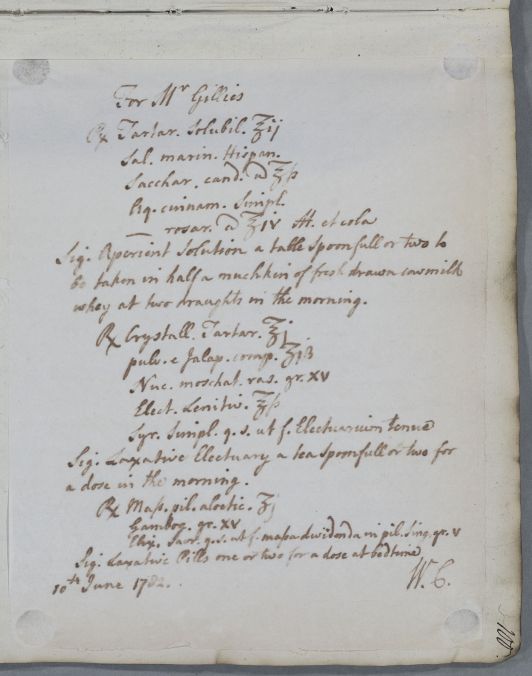 For Mr Gillies
℞ Tartar. Solubil. ℥ij
Sal. marin. Hispan.
Sacchar. cand. a ℥ß
Aq. cinnam. Simpl.
— rosar. a ℥iv M. et cola
Sig. Aperient Solution a table spoonfull or two to
be taken in half a muchkin of fresh drawn cowmilk
whey at two draughts in the morning.
℞ Crystall. Tartar. ℥j
pulv. e Jalap. comp.
Nuc. moschat. ras. gr. XV
Elect. Lenitiv. ℥ß
Syr. Simpl. q. s. ut f. Electuarium tenue
Sig. Laxative Electuary a teaspoonfull or two for
a dose in the morning.
℞ Mass. pil. aloetic.
Gambog. gr. XV
Elix. Sacr. q. s. ut f. massa dividenda in pil. sing. gr. v
Sig. Laxative Pills one or two for a dose at bedtime
10th June 1782.
W. C.